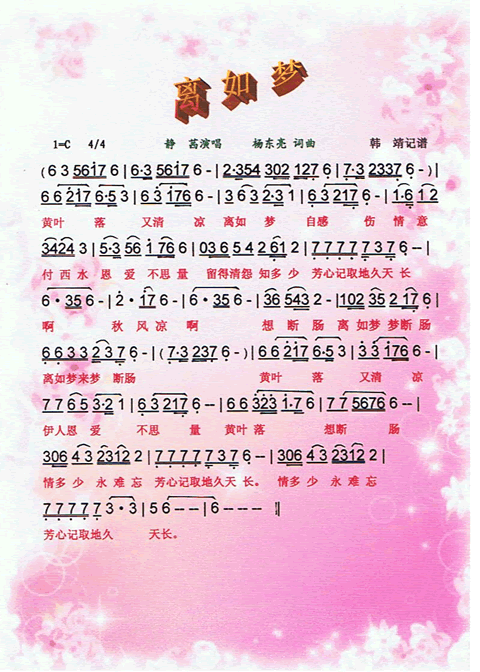 离如梦
1=C 4/4 静 茗演唱 杨东亮 词曲 韩 靖记谱
(6 3 5617 6 | 6·3 5617 6 - | 2·354 302 127 6 | 7·3 2337 6 - ) |
6 6 217 6·5 3 | 6 3 176 6 - | 3 6 3 2·3 1 | 6 3 217 6 - | 1·6 1 2
黄叶 落 又清 凉 离如 梦 自感 伤 情 意
3424 3 | 5·3 56 1 76 6 | 03 6 5 4 2 61 2 | 7 7 7 7 7 3 7 6 -- |
付 西 水 恩 爱 不思 量 留得清怨 知多 少 芳心记取地久天 长
6 · 35 6 - | 2 · 17 6 - | 6 · 35 6 - | 36 543 2 - | 102 35 2 17 6 |
啊 秋 风 凉 啊 想 断 肠 离 如梦 梦断 肠
6 6 3 3 2 3 7 6 - | (7·3 237 6 - ) | 6 6 217 6·5 3 | 3 3 176 6 - |
离如梦来梦 断肠 黄叶 落 又清 凉
7 7 6 5 3·2 1 | 6 6 3 217 6 - | 6 6 323 1·7 6 | 7 7 5676 6 -- |
伊人恩 爱 不思 量 黄叶 落 想断 肠
306 4 3 2312 2 | 7 7 7 7 7 3 7 6 -- | 306 4 3 2312 2 |
情多 少 永 难 忘 芳心记取地久天 长。 情多 少 永 难 忘
7 7 7 7 7 3 · 3 | 5 6 -- | 6 --- ‖
芳心记取地久 天长。